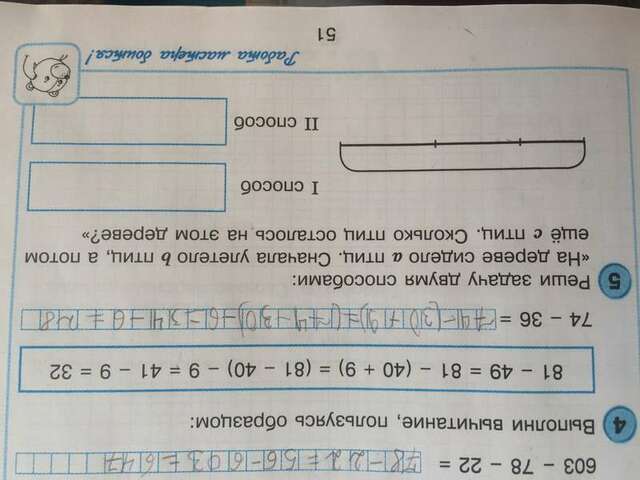 603 − 78 − 22 = 78 − 22 = 56 − 603 = 647
4 Выполни вычитание, пользуясь образцом:
81 − 49 = 81 − (40 + 9) = (81 − 40) − 9 = 41 − 9 = 32
74 − 36 = 74 − (30 + 9) = (74 − 30) − 6 = 34 − 6 = 28
5 Реши задачу двумя способами:
«На дереве сидело a птиц. Сначала улетело b птиц, а потом
ещё c птиц. Сколько птиц осталось на этом дереве?»
I способ
II способ
Работа мастера боится!
51